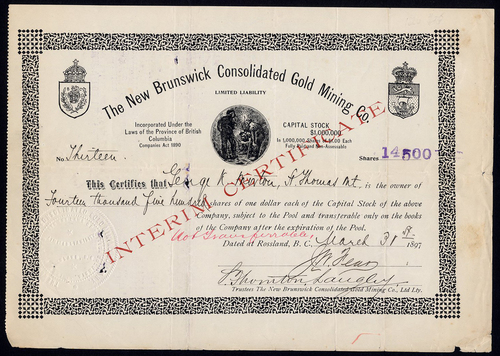 The New Brunswick Consolidated Gold Mining Co.
LIMITED LIABILITY
Incorporated Under the
Laws of the Province of British
Columbia
Companies Act 1890
CAPITAL STOCK
$1,000,000
In 1,000,000 Shares of $1.00 Each
Fully Paid and Non-Assessable
No Thirteen.
Shares 14500
INTERIM CERTIFICATE
This Certifies that George K. St Thomas is the owner of
Fourteen thousand five hundred shares of one dollar each of the Capital Stock of the above
Company, subject to the Pool and transferable only on the books
of the Company after the expiration of the Pool.
Not Transferrable
Dated at Rossland, B. C., March 31st 1897
Trustees The New Brunswick Consolidated Gold Mining Co., Ltd Lty.